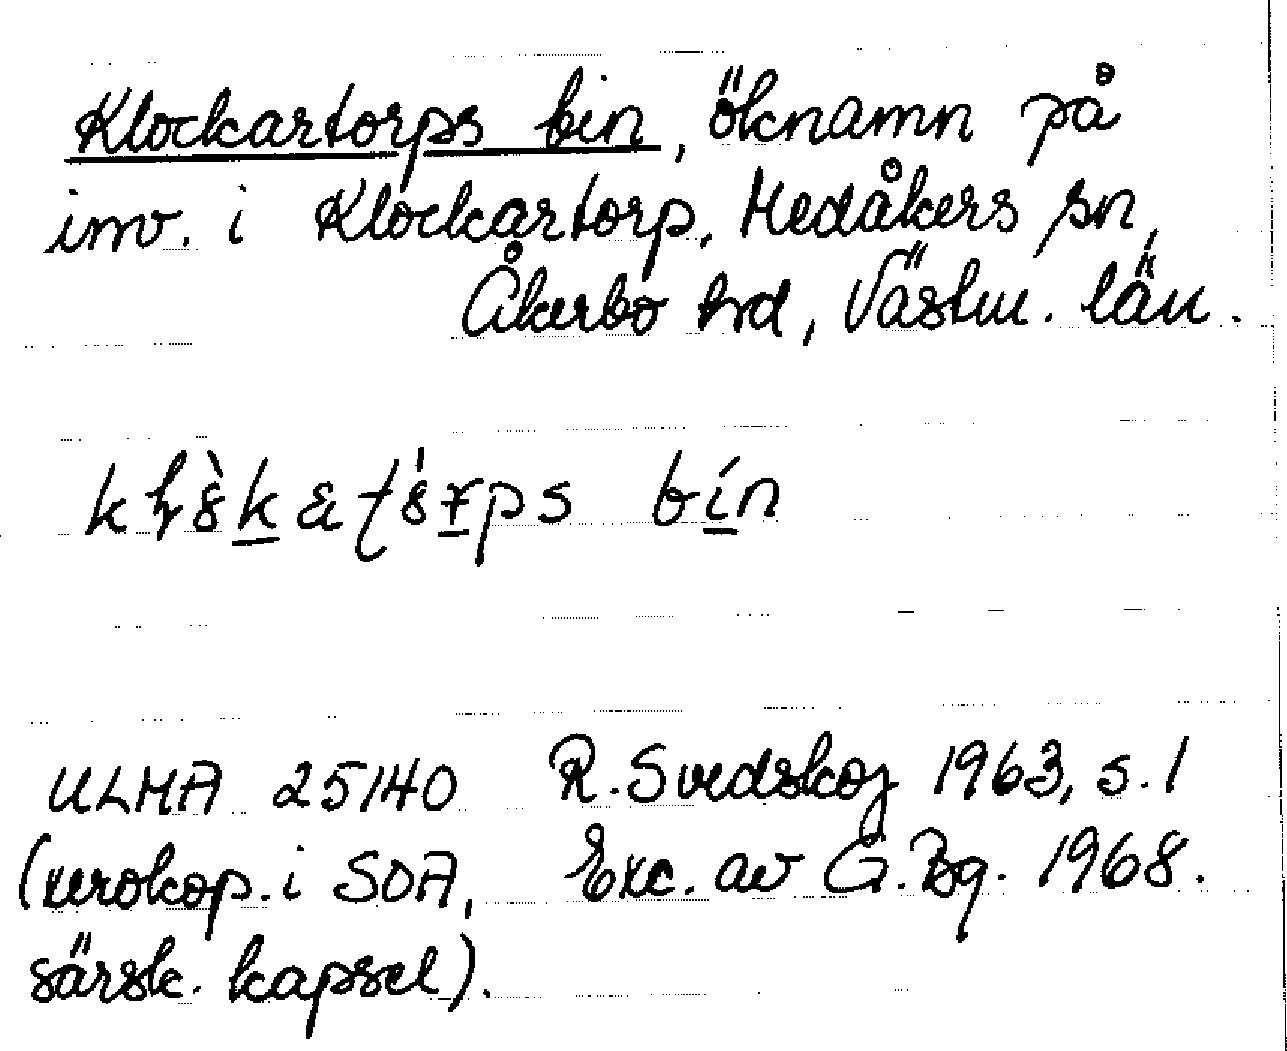 Klockartorps bin, öknamn på
inv. i Klockartorp, Medåkers sn,
Åkerbo hd, Västm. län.
bín
ULMA 25140 R. Svedskog 1963, s. 1
(xerokop. i SOA, Exc. av G. Bg. 1968.
särsk. kapsel).